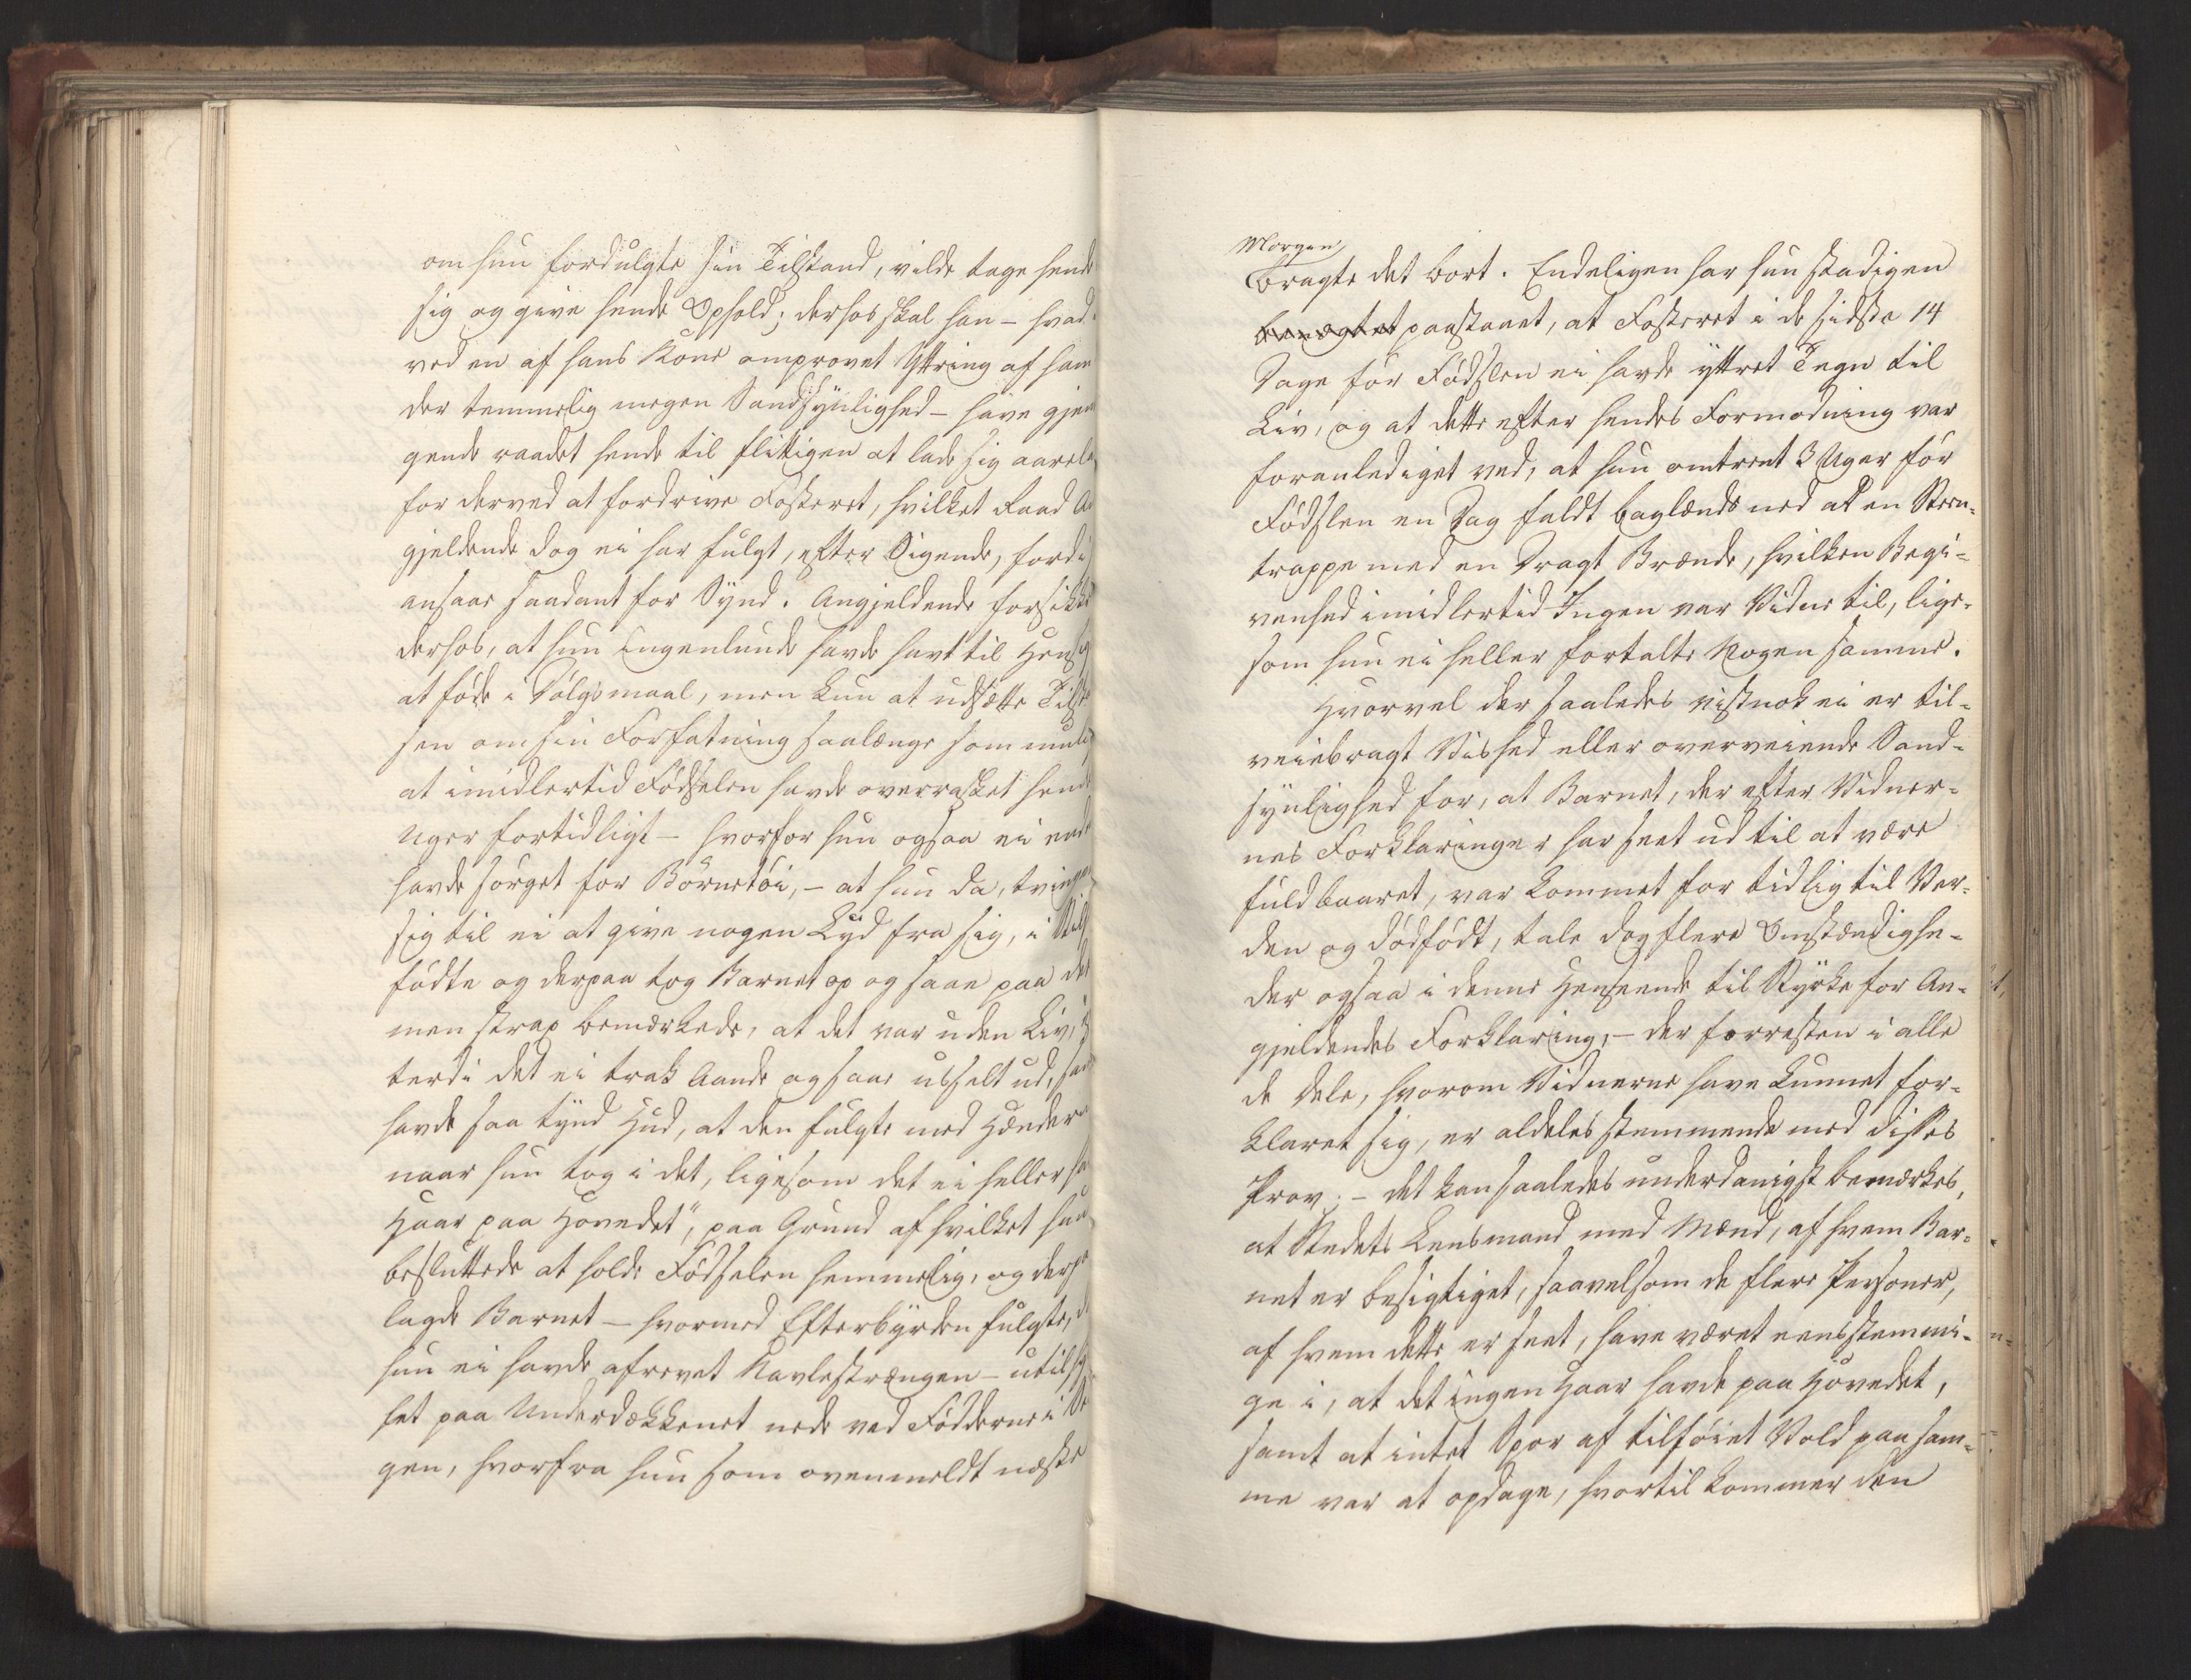 om hun fordulgte sin Tilstand, vilde tage hende
sig og give hende Ophold; derhos skal han – hvad
ved en af hans Kone omprovet Yttring af ham
der temmelig megen Sandsynlighed – have gjen
gende raadet hende til flittigen at lade sig aarela
for derved at fordrive Fosteret, hvilket Raad A
gjeldende dog ei har fulgt, efter Sigende, fordi
ansaae saadant for Synd. Angjeldende forsikk
derhos, at hun ingenlunde havde havt til Hensig
at føde i Dølgsmaal, men kun at udsætte Tilst
sen om sin Forfatning saalænge som mulig
at imidlertid Fødselen havde overrasket hende
Uger fortidligt – hvorfor hun ogsaa ei end
havde sørget for Børnetøi, – at hun da, tvinge
sig til ei at give nogen Lyd fra sig, i Stil
fødte og derpaa tog Barnet op og saae paa det
men strax bemærkede, at det var uden Liv,
terdi det ei trak Aande og saae usselt ud, sam
havde saa tynd Hud, at den fulgte med Hænder
naar hun tog i det, ligesom det ei heller ha
Haar paa Hovedet", paa Grund af hvilket hun
besluttede at holde Fødselen hemmelig, og derpa
lagde Barnet – hvormed Efterbyrden fulgte,
hun ei havde afrevet Navlestrængen – utilhy
let paa Underdækkenet nede ved Fødderne i Se
gen, hvorfra hun som ovenmeldt næste
Morgen
bragte det bort. Endeligen har hun stadigen
benægtet paastaaet, at Fosteret i de sidste 14
Dage før Fødslen ei havde yttret Tegn til
Liv, og at dette efter hendes Formodning var
foranlediget ved, at hun omtrent 3 Uger før
Fødslen en Dag faldt baglænds ned ad en Steen-
trappe med en Dragt Brænde, hvilken Begi-
venhed imidlertid Ingen var Vidne til, lige-
som hun ei heller fortalte Nogen samme.
Hvorvel der saaledes vistnok ei er til-
veiebragt Vished eller overveiende Sand-
synlighed for, at Barnet, der efter Vidner-
nes Forklaringer har seet ud til at være
fuldbaaret, var kommet for tidlig til Ver-
den og dødfødt, tale dog flere Omstændighe-
der ogsaa i denne Henseende til Styrke for An-
gjeldendes Forklaring, – der forresten i alle
de Dele, hvorom Vidnerne have kunnet for-
klaret sig, er aldeles stemmende med disses
Prov. – det kan saaledes underdanigst bemærkes,
at Stedets Lensmand med Mænd, af hvem Bar-
net er besigtiget, saavelsom de flere Personer,
af hvem dette er seet, have været eensstemmi-
ge i, at det ingen Haar havde paa Hovedet,
samt at intet Spor af tilføiet Vold paa sam-
me var at opdage, hvortil kommer den